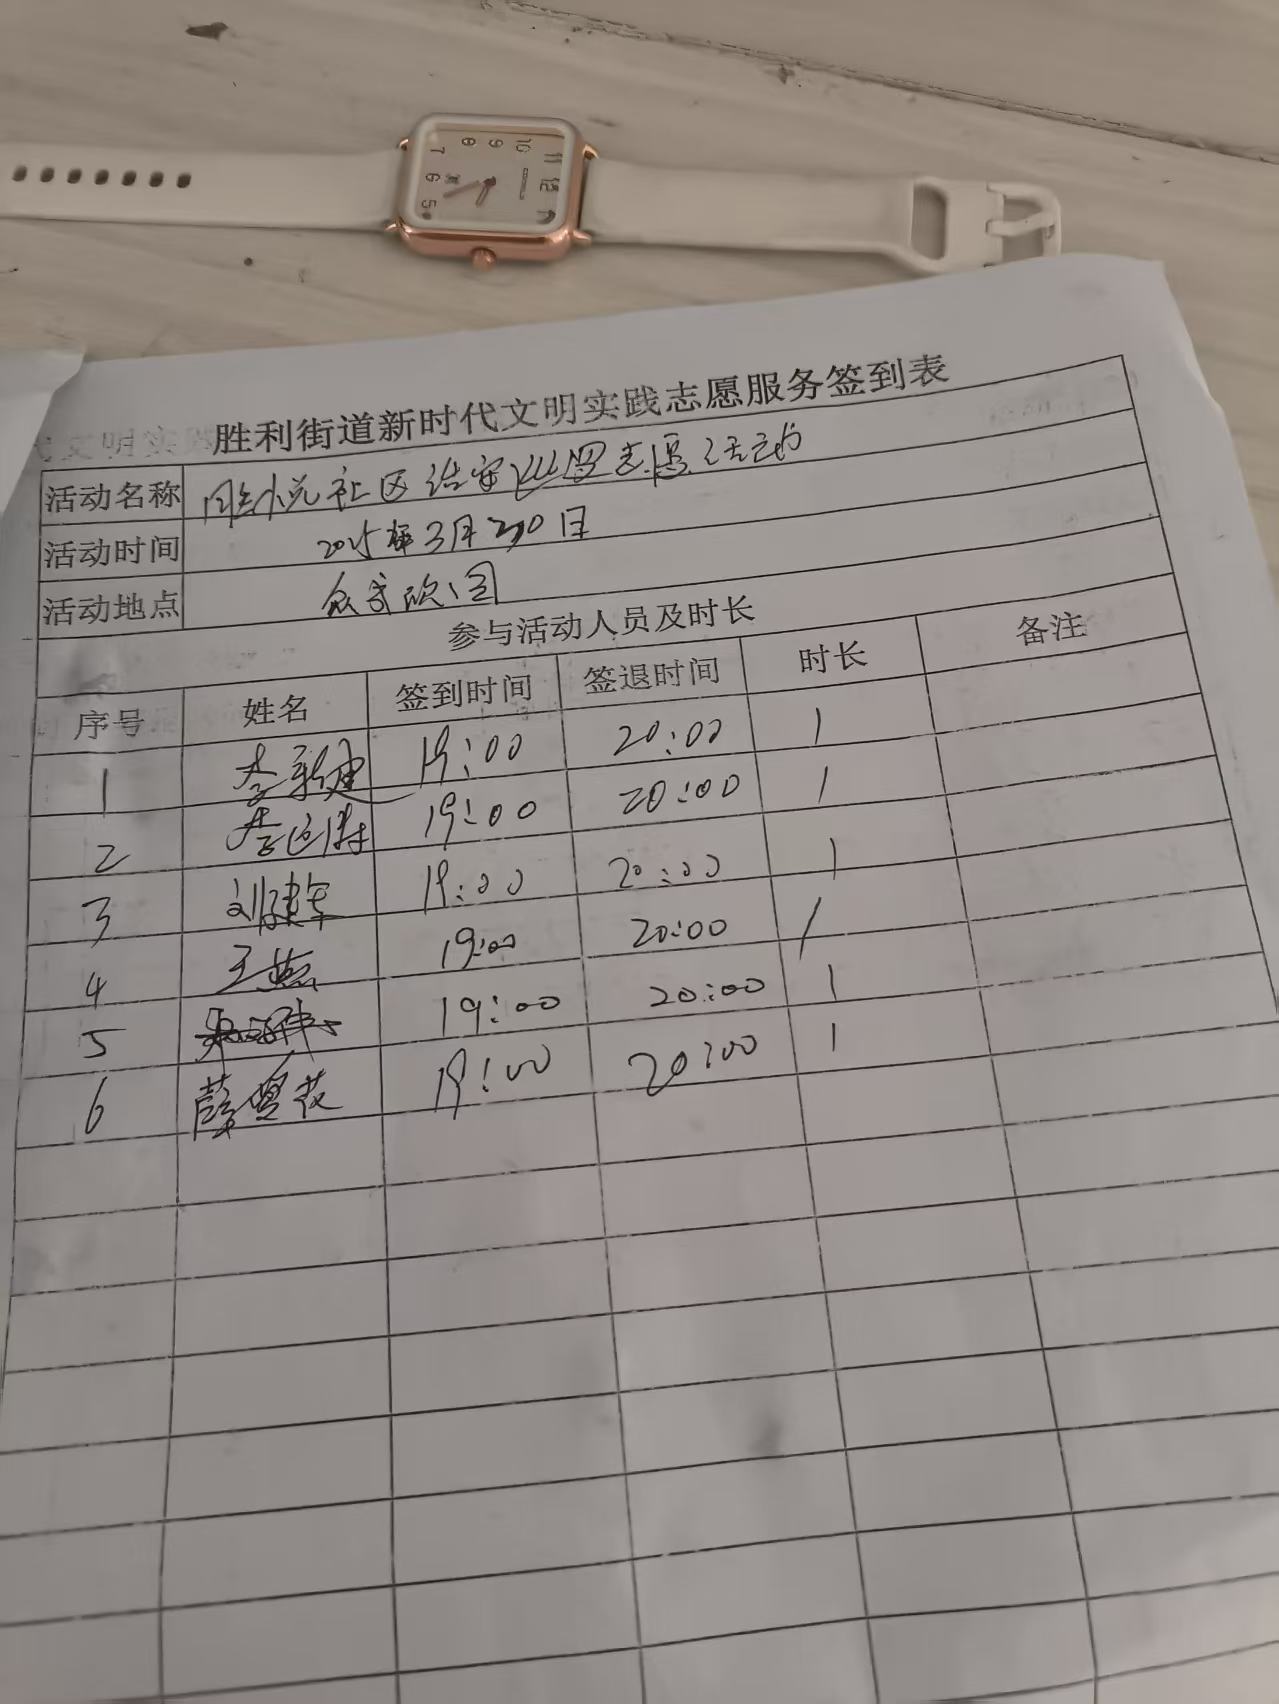 胜利街道新时代文明实践志愿服务签到表
活动名称 胜悦社区治安巡逻志愿活动
活动时间 2025年3月30日
活动地点
参与活动人员及时长
序号 姓名 签到时间 签退时间 时长 备注
1 李新建 19:00 20:00 1
2 19:00 20:00 1
3 刘建军 19:00 20:00 1
4 王燕 19:00 20:00 1
5 19:00 20:00 1
6 薛 19:00 20:00 1